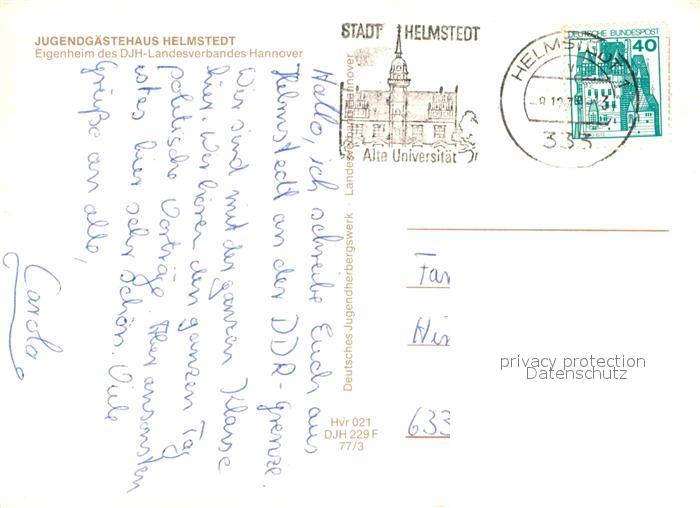 JUGENDGÄSTEHAUS HELMSTEDT
Eigenheim des DJH-Landesverbandes Hannover
Hallo, ich schreibe Euch aus
Helmstedt an der DDR-Grenze.
Wir sind mit der ganzen Klasse
hier. Wir hören den ganzen Tag
politische Vorträge. Aber ansonsten
ist es hier sehr schön. Viele
Grüße an alle,
Carola
Deutsches Jugendherbergswerk · Landesverband Hannover
Hvr 021
DJH 229 F
77/3
STADT HELMSTEDT
Alte Universität
HELMSTEDT 1
333
DEUTSCHE BUNDESPOST
40
Fa
633
privacy protection
Datenschutz